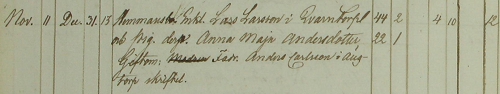 Nov. 11 Dec. 31. 13 Hemmansä. Enkl. Lars Larsson i Qvarntorp 44 2 4 10 12
och Pig. Anna Maja Andersdotter, 22 1
Giftom: Fadr. Anders Carlsson i Aug-
torp skriftel.